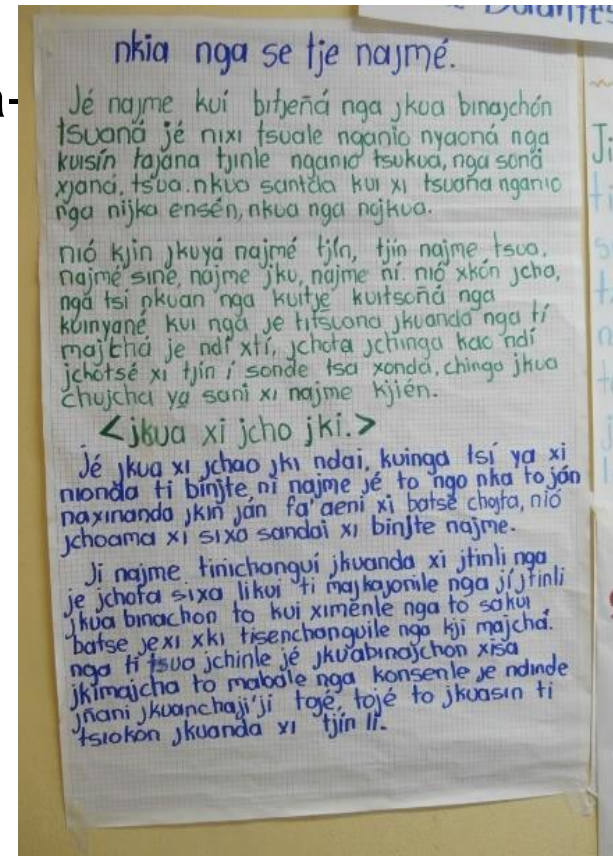 nkia nga se tje najmé.
Jé najme kuí bitjeñá nga jkua binajchón
tsuaná jé nixi tsuale nganio nyaoná nga
kuisín tajana tjinle nganio tsukua, nga soná
xjaná, tsua. nkua santda kui xi tsuaña nganio
nga nijka ensén, nkua nga najkua.
nió kjin jkuyá najmé tjín, tjín najme tsua,
najmé siné, najme jku, najme ní. nió xkón jcho,
nga tsi nkuan nga kuitje kuitsoñá nga
kuinyané kui nga je titsuona jkuanda nga tí
majchá je ndí xtí, jchota jchinga kao ndí
jchotsé xi tjín í sonde tsa xonda, chingo jkua
chujcha ya sani xi najme kjién.
<jkua xi jcho jki.>
Jé jkua xi jchao jki ndai, kuinga tsí ya xi
nionda ti binjte, ni najme jé to ngo nka to ján
naxinanda jkin ján fa'aeni xi batse chojta, nió
jchoama xi sixa sandai xi binjte najme.
Ji najme tinichanguí jkuanda xi jtinli nga
je jchota sixa likui ti majkajonile nga jíjtinli
jkua binachon to kui ximénle nga to sakui
batse jexi xki tisenchanguile nga kji majchá.
nga ti tsua jchinle jé jku'abinajchon xisa
jkimajcha to mabale nga konsenle je ndinde
jñani jkuanchaji'ji tojé, tojé to jkuasin ti
tsiokon jkuanda xi tjín li.